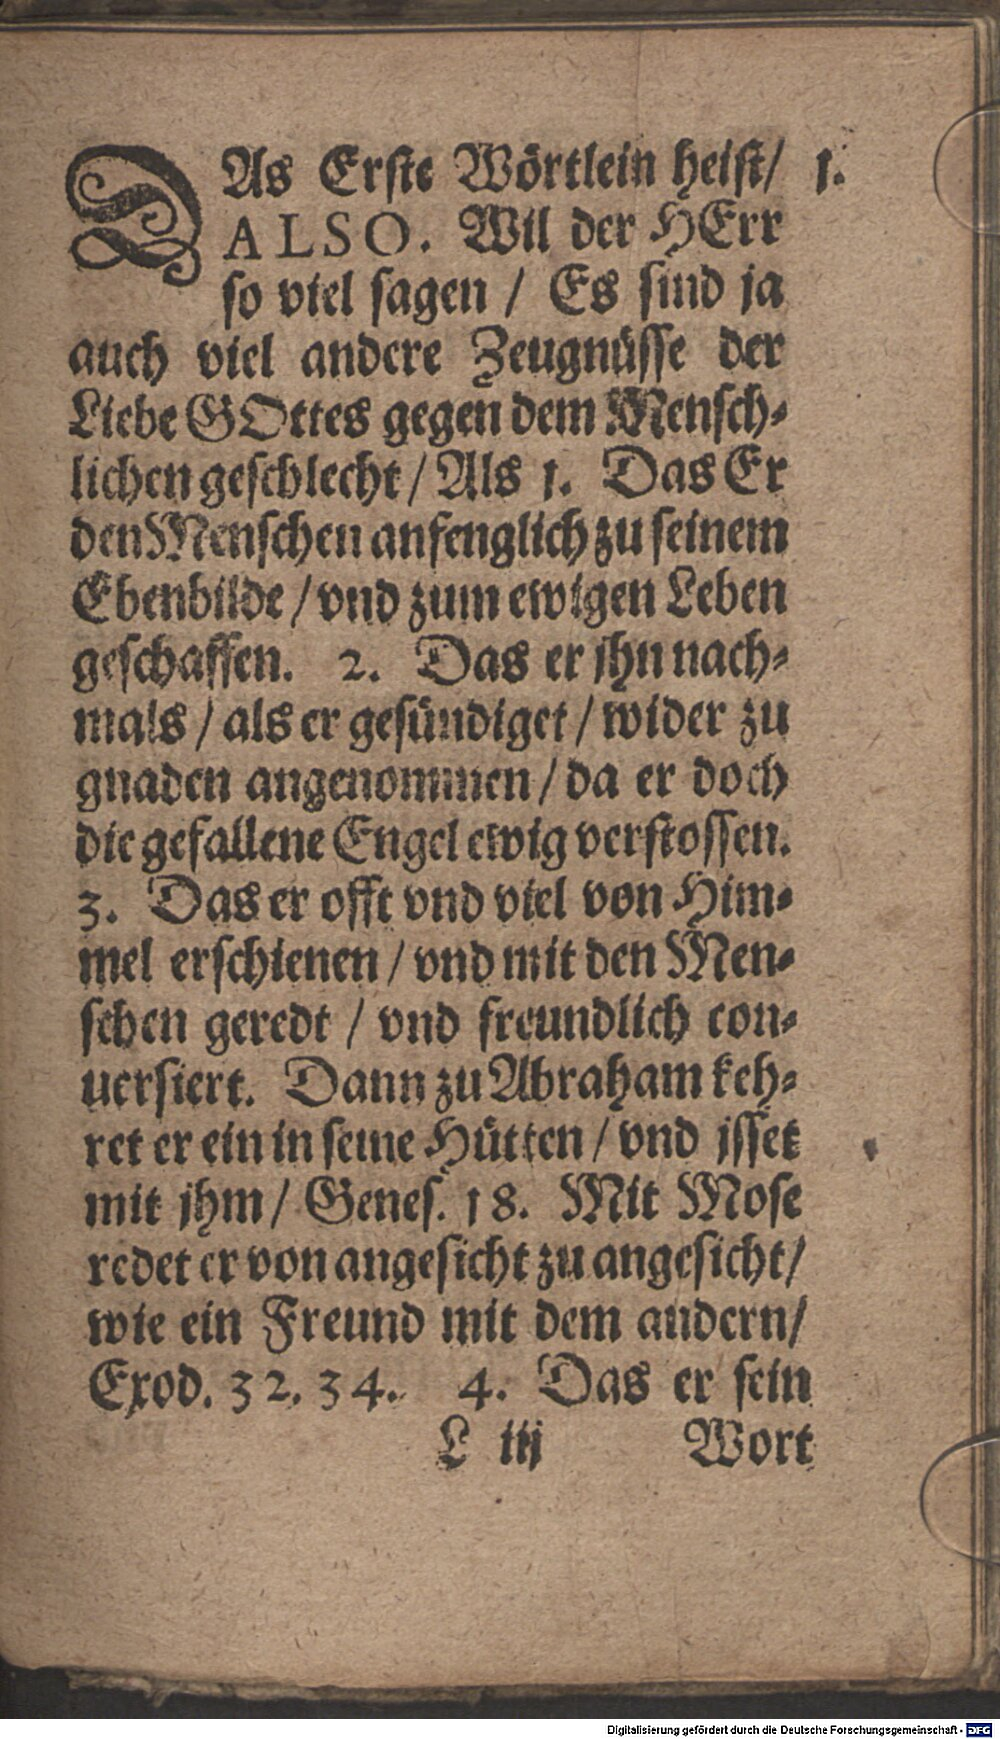 DAs Erste Wörtlein heist/ 1.
ALSO. Wil der HErr
so viel sagen / Es sind ja
auch viel andere Zeugnüsse der
Liebe GOttes gegen dem Mensch-
lichen geschlecht / Als 1. Das Er
den Menschen anfenglich zu seinem
Ebenbilde / vnd zum ewigen Leben
geschaffen. 2. Das er jhn nach-
mals / als er gesündiget / wider zu
gnaden angenommen / da er doch
die gefallene Engel ewig verstossen.
3. Das er offt vnd viel von Him-
mel erschienen / vnd mit den Men-
schen geredt / vnd freundlich con-
uersiert. Dann zu Abraham keh-
ret er ein in seine Hütten / vnd jsset
mit jhm / Genes. 18. Mit Mose
redet er von angesicht zu angesicht/
wie ein Freund mit dem andern/
Exod. 32. 34. 4. Das er sein
L iij Wort
Digitalisierung gefördert durch die Deutsche Forschungsgemeinschaft - DFG